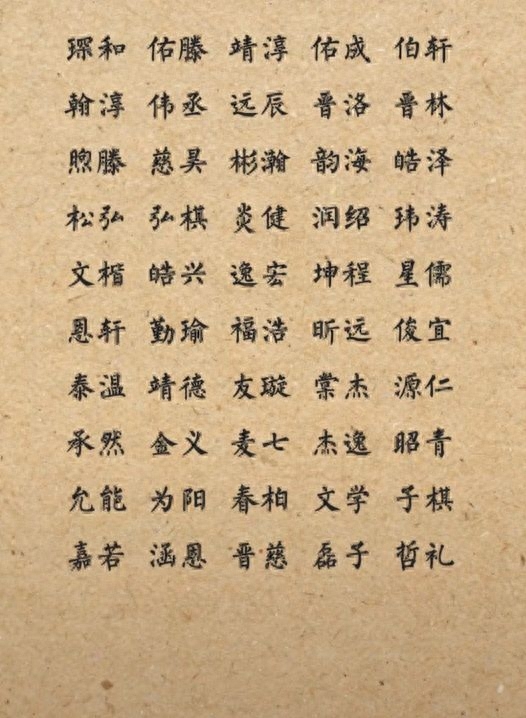 琛和 佑滕 靖淳 佑成 伯轩
翰淳 伟丞 远辰 晋洛 晋林
煦滕 慈昊 彬瀚 韵海 皓泽
松弘 弘棋 炎健 润绍 玮涛
文楷 皓兴 逸宏 坤程 星儒
恩轩 勤瑜 福浩 昕远 俊宜
泰温 靖德 友璇 棠杰 源仁
承然 金义 麦七 杰逸 昭青
允能 为阳 春柏 文学 子棋
嘉若 涵恩 晋慈 磊子 哲礼